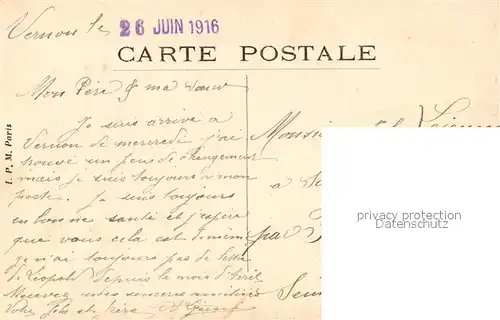 Vernon le 26 JUIN 1916
CARTE POSTALE
Mon Père & ma sœur
Je suis arrivé à
Vernon de mercredi j'ai
trouvé un peu de changement
mais je suis toujours à mon
poste. Je suis toujours
en bonne santé et j'espère
que vous cela est de même
je n'ai toujours pas de lettre
de Léopold depuis le mois d'avril
Recevez mes sincères amitiés
Votre fils et frère
I. P. M. Paris
à
privacy protection
Datenschutz